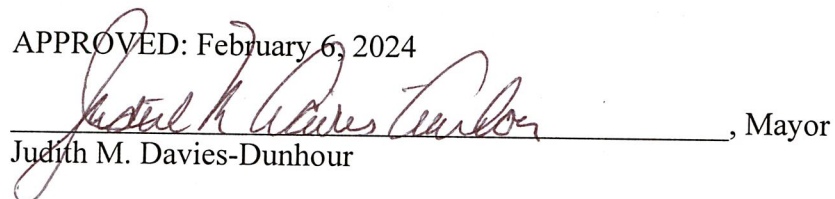 APPROVED: February 6, 2024
Judith M. Davies-Dunhour, Mayor
Judith M. Davies-Dunhour